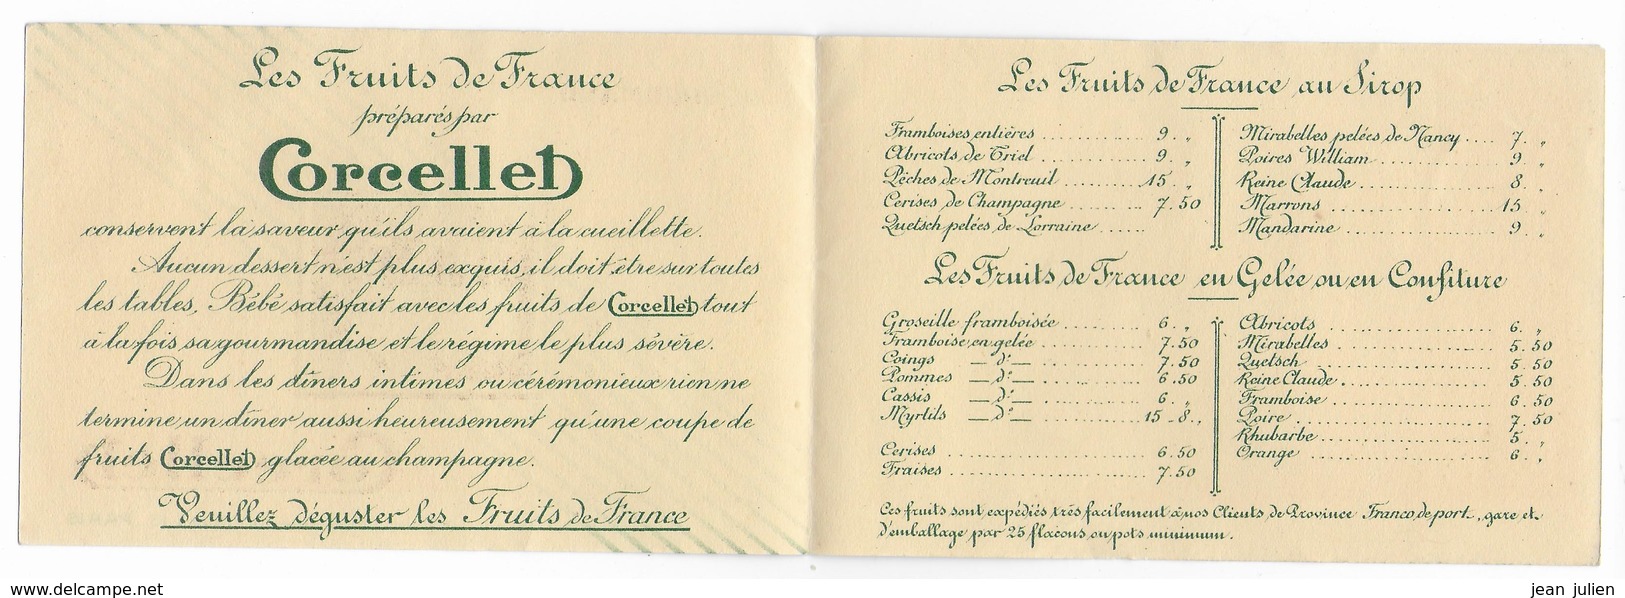 Les Fruits de France
préparés par
Corcellet
conservent la saveur qu'ils avaient à la cueillette.
Aucun dessert n'est plus exquis, il doit être sur toutes
les tables. Bébé satisfait avec les fruits de Corcellet tout
à la fois sa gourmandise et le régime le plus sévère.
Dans les dîners intimes ou cérémonieux rien ne
termine un dîner aussi heureusement qu'une coupe de
fruits Corcellet glacée au champagne.
Veuillez déguster les Fruits de France
Les Fruits de France au Sirop
Framboises entières .............. 9. „
Abricots de Triel .............. 9. „
Pêches de Montreuil .......... 15 „
Cerises de Champagne ......... 7.50
Quetsch pelées de Lorraine ......
Mirabelles pelées de Nancy .... 7. „
Poires William .............. 9. „
Reine Claude .............. 8. „
Marrons .............. 15. „
Mandarine .............. 9. „
Les Fruits de France en Gelée ou en Confiture
Groseille framboisée .......... 6. „
Framboise en gelée .......... 7.50
Coings — d° — .......... 7.50
Pommes — d° — .......... 6.50
Cassis — d° — .......... 6. „
Myrtils — d° — .......... 15 - 8. „
Cerises .............. 6.50
Fraises .............. 7.50
Abricots .............. 6. „
Mirabelles .............. 5.50
Quetsch .............. 5.50
Reine Claude .............. 5.50
Framboise .............. 6.50
Poire .............. 7.50
Rhubarbe .............. 5. „
Orange .............. 6. „
Ces fruits sont expédiés très facilement à nos Clients de Province Franco de port, gare et
d'emballage par 25 flacons ou pots minimum.
www.delcampe.net
jean julien